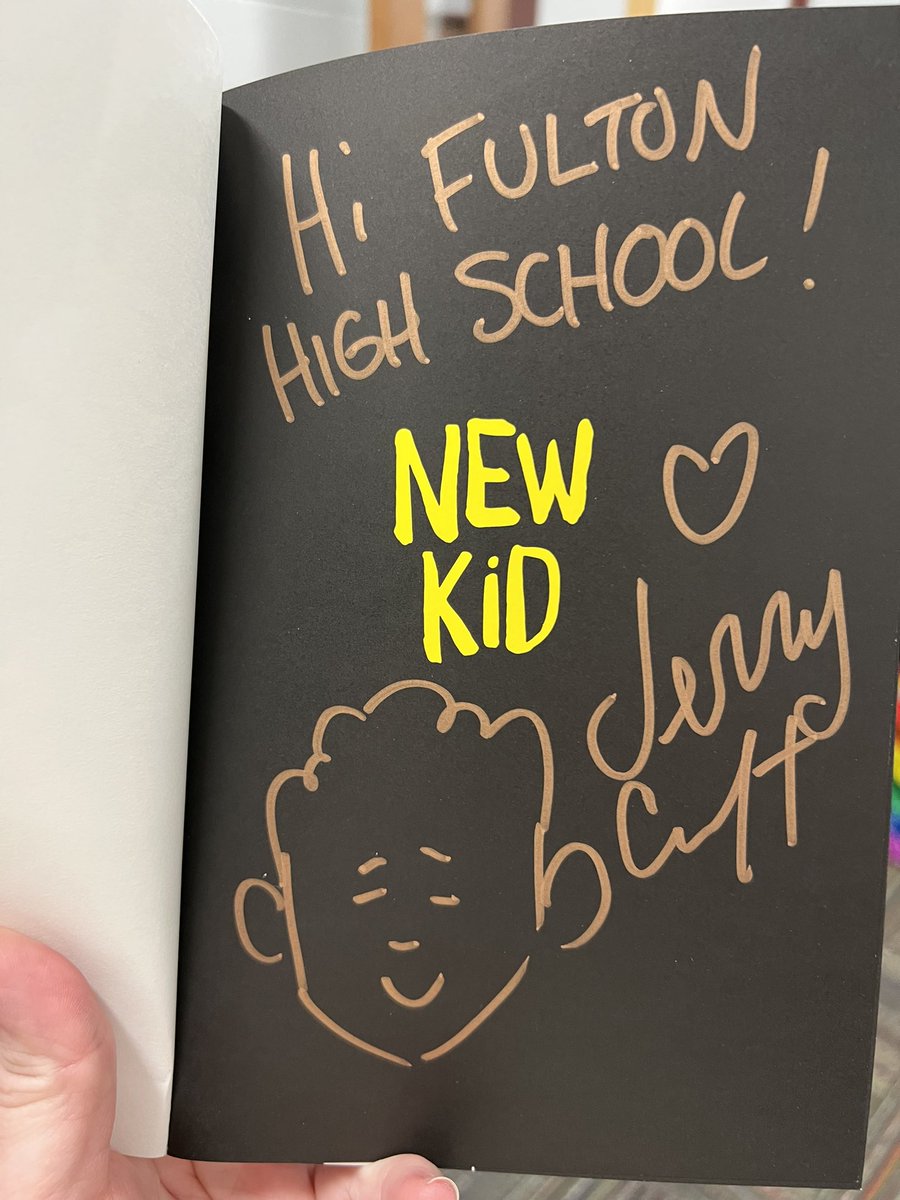 Hi FULTON
HIGH SCHOOL!
NEW
KiD
Jerry
Craft